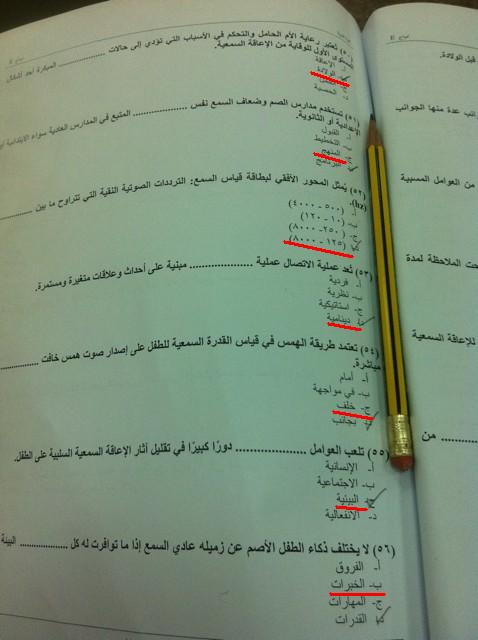 (٥٠) تعتبر رعاية الأم الحامل والتحكم في الأسباب التي تؤدي إلى حالات ............ المبكرة أحد أشكال
المستوى الأول للوقاية من الإعاقة السمعية.
أ- الإعاقة
ب- الولادة
د- الحصبة
(٥١) تستخدم مدارس الصم وضعاف السمع نفس ............ المتبع في المدارس العادية سواء الابتدائية أو
الإعدادية أو الثانوية.
أ- القبول
ب- التخطيط
ج- المنهج
د- البرنامج
(٥٢) يُمثل المحور الأفقي لبطاقة قياس السمع: الترددات الصوتية النقية التي تتراوح ما بين ............
(hz).
أ- (٥٠٠ - ٤٠٠٠)
ب- (١٠ - ١٢٠)
ج- (٢٥٠ - ٨٠٠٠)
د- (١٢٥ - ٨٠٠٠)
(٥٣) تُعد عملية الاتصال عملية ............ مبنية على أحداث وعلاقات متغيرة ومستمرة.
أ- فردية
ب- نظرية
ج- استاتيكية
د- دينامية
(٥٤) تعتمد طريقة الهمس في قياس القدرة السمعية للطفل على إصدار صوت همس خافت ............
مباشرة.
أ- أمام
ب- في مواجهة
ج- خلف
د- بجانب
(٥٥) تلعب العوامل ............ دورًا كبيرًا في تقليل آثار الإعاقة السمعية السلبية على الطفل.
أ- الإنسانية
ب- الاجتماعية
ج- البيئية
د- الانفعالية
(٥٦) لا يختلف ذكاء الطفل الأصم عن زميله عادي السمع إذا ما توافرت له كل ............ البيئة
أ- الفروق
ب- الخبرات
ج- المهارات
د- القدرات
قبل الولادة.
عدة منها الجوانب
من العوامل المسببة
الملاحظة لمدة
للإعاقة السمعية
............ من